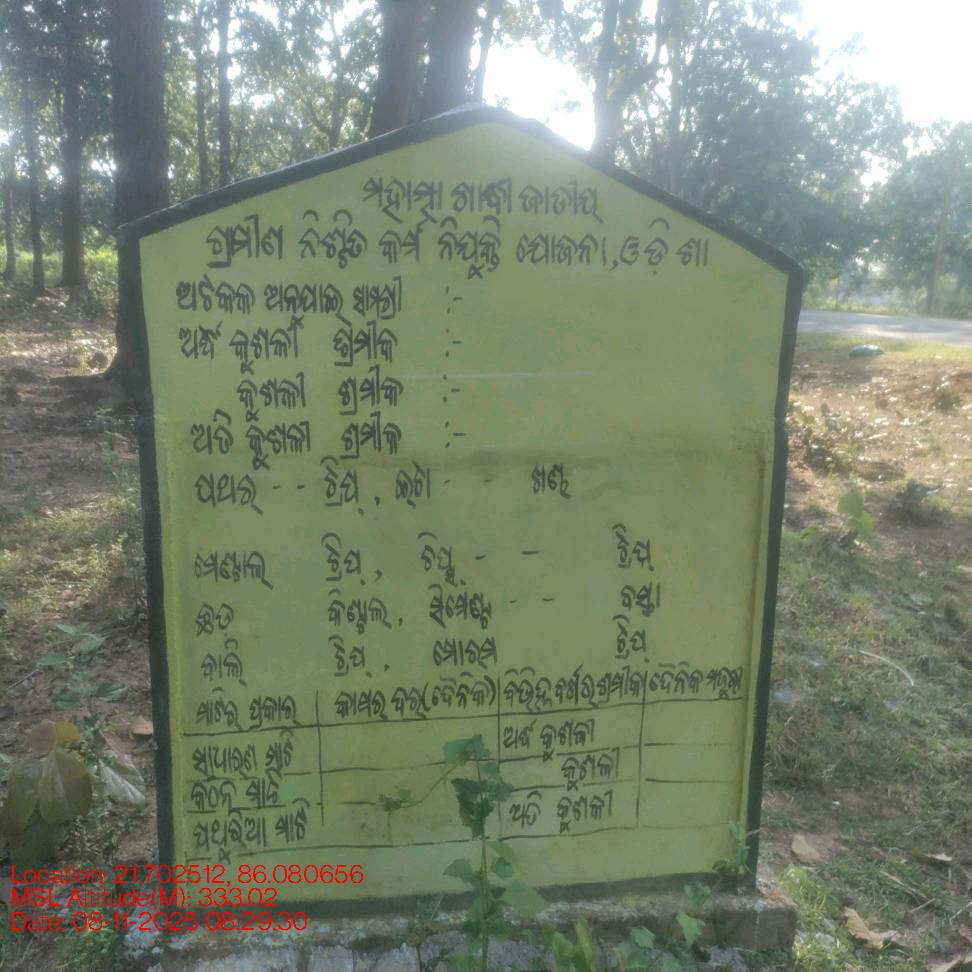 ମହାତ୍ମା ଗାନ୍ଧୀ ଜାତୀୟ
ଗ୍ରାମୀଣ ନିଶ୍ଚିତ କର୍ମ ନିଯୁକ୍ତି ଯୋଜନା,ଓଡ଼ିଶା
ଅଟକଳ ଅନୁଯାଇ ସାମଗ୍ରୀ :-
ଅର୍ଦ୍ଧ କୁଶଳୀ ଶ୍ରମୀକ :-
କୁଶଳୀ ଶ୍ରମୀକ :-
ଅତି କୁଶଳୀ ଶ୍ରମୀକ :-
ପଥର -- ଟ୍ରିପ୍, ଇଟା - - ଖଣ୍ଡ
ମେଣ୍ଟାଲ ଟ୍ରିପ୍, ଚିପ୍ସ - - ଟ୍ରିପ୍
ଛଡ଼ କିଣ୍ଟାଲ, ସିମେଣ୍ଟ -- ବସ୍ତା
ବାଲି ଟ୍ରିପ୍, ମୋରମ ଟ୍ରିପ୍
ମାଟିର ପ୍ରକାର କାମର ଦର(ଦୈନିକ) ବିଭିନ୍ନ ବର୍ଗର ଶ୍ରମୀକ ଦୈନିକ ମଜୁରୀ
ସାଧାରଣ ମାଟି ଅର୍ଦ୍ଧ କୁଶଳୀ
କଠିନ ମାଟି କୁଶଳୀ
ପଥୁରିଆ ମାଟି ଅତି କୁଶଳୀ
Location: 21.702512, 86.080656
MSL Altitude(M): 333.02
Date: 08-11-2025 08.29.30